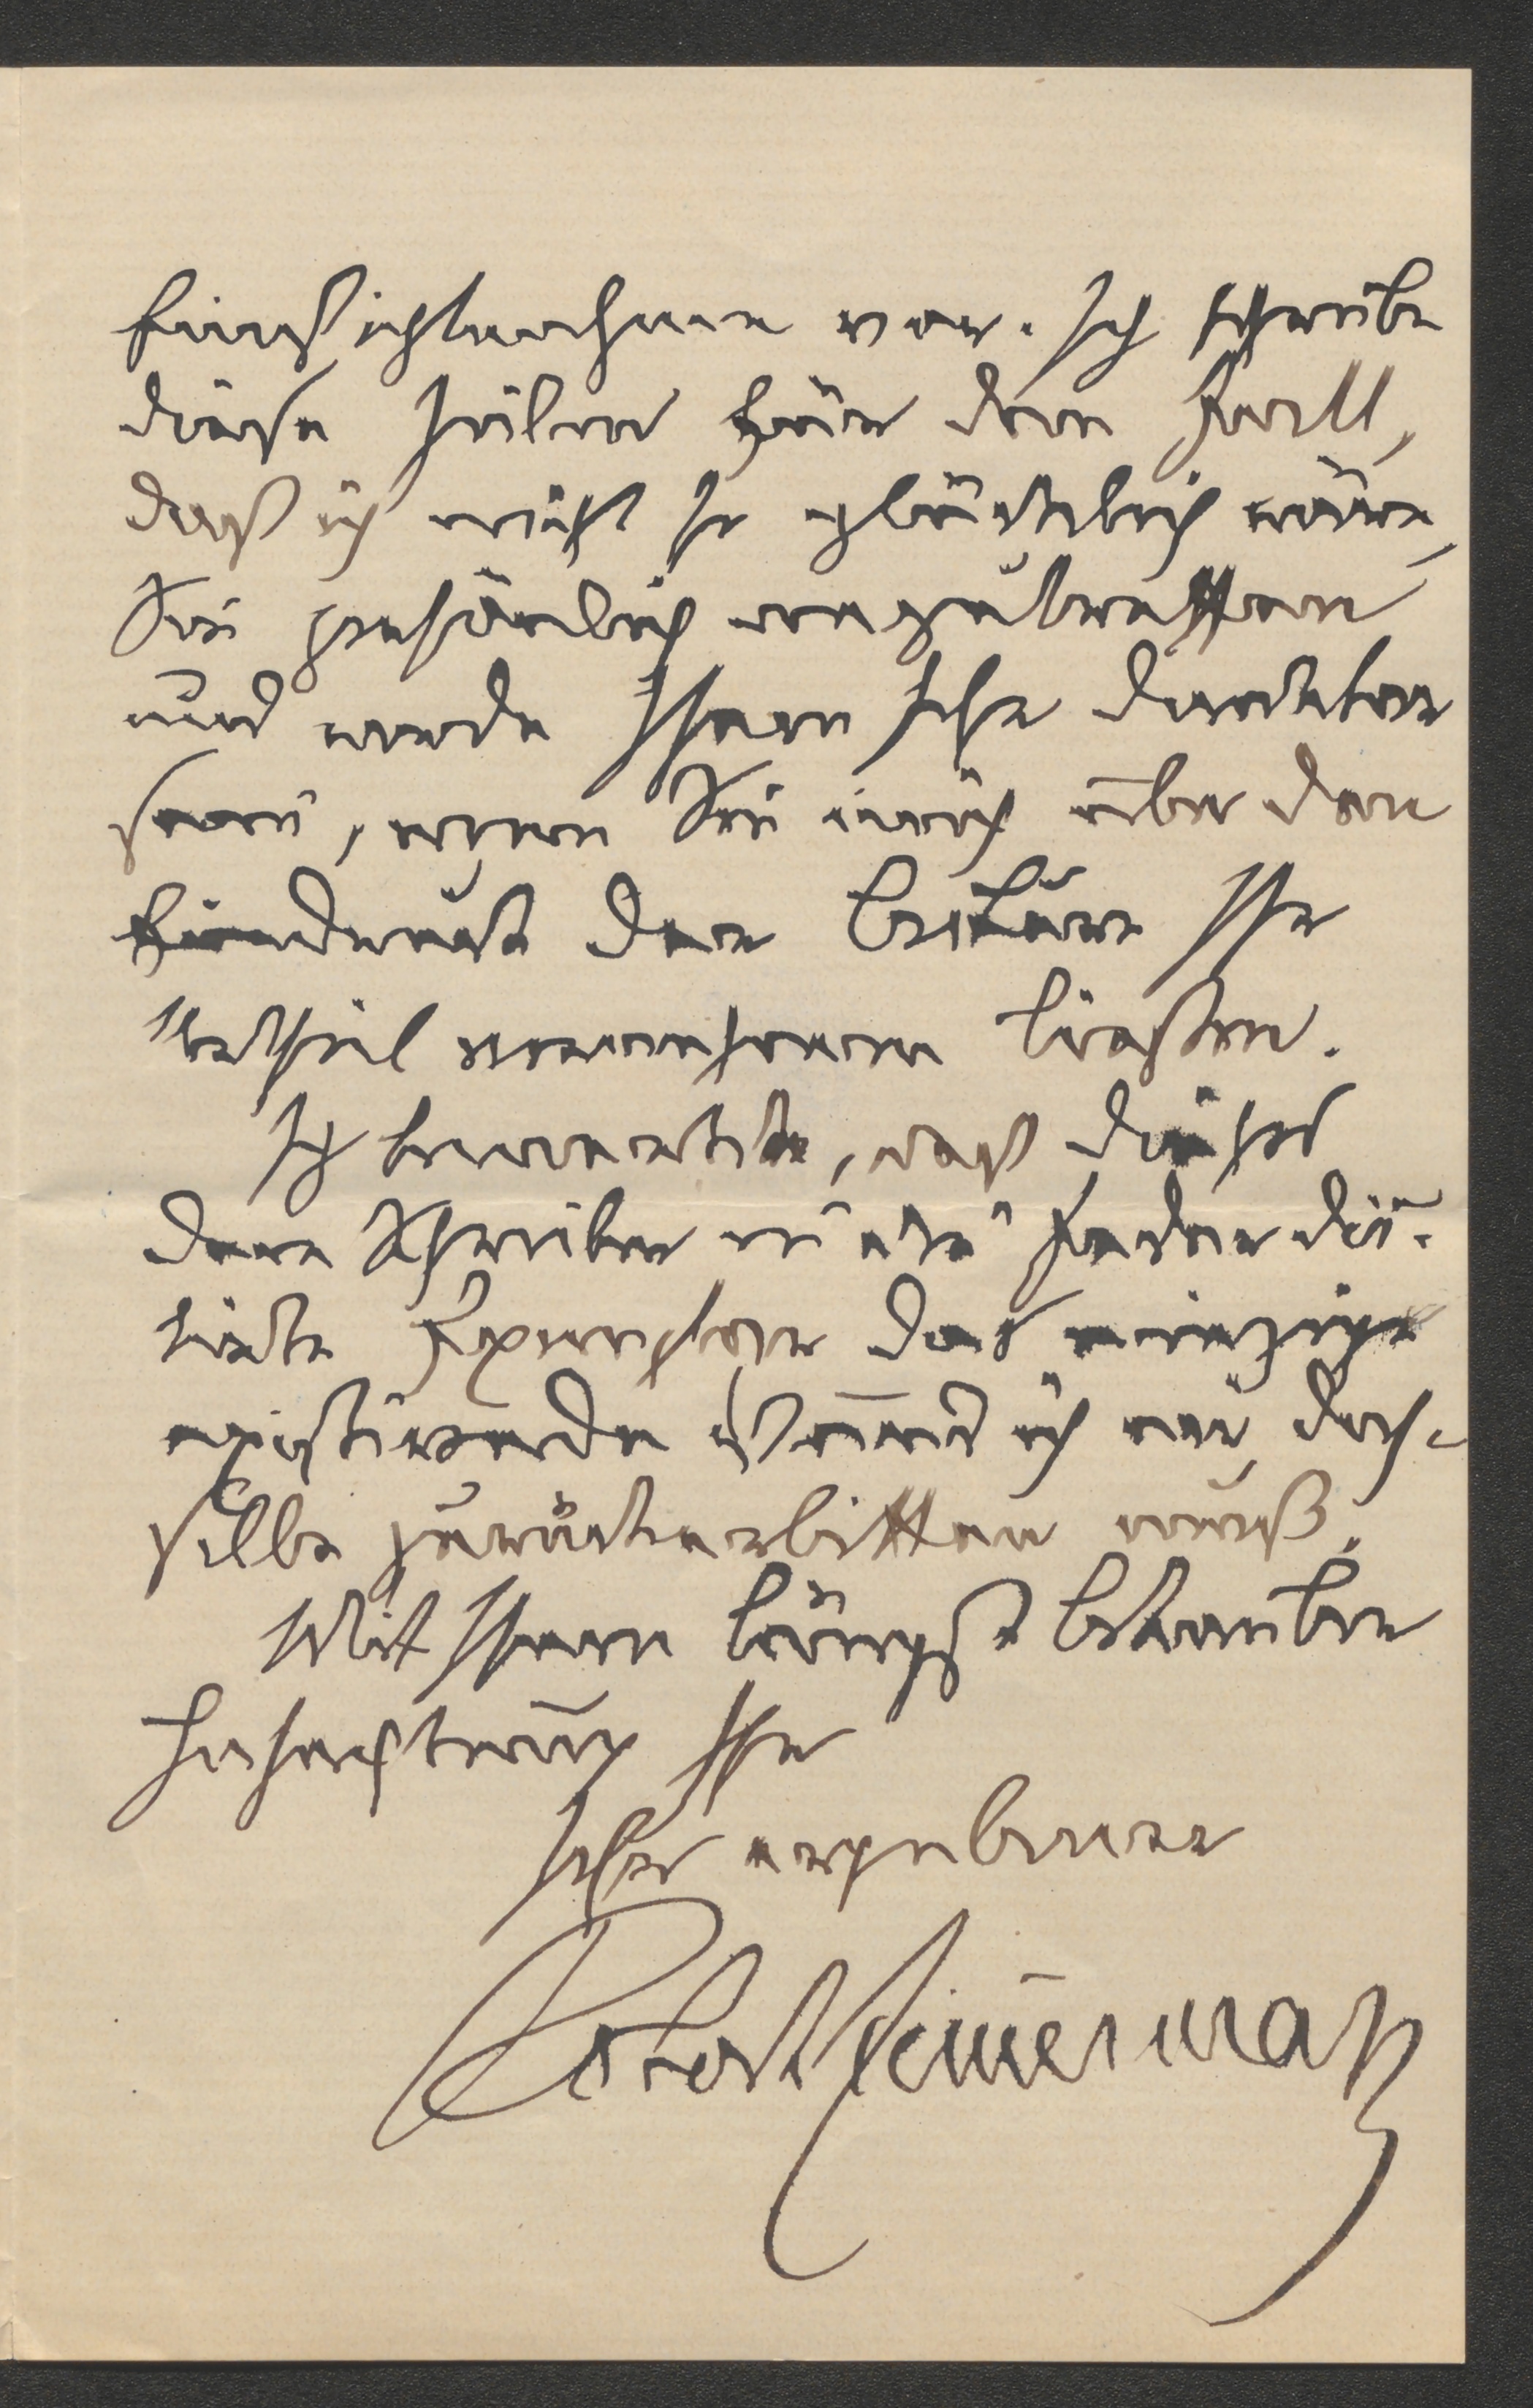 Einsichtnahme vor. Ich schreibe
diese Zeilen für den Fall,
daß ich nicht so glücklich wäre,
Sie persönlich anzutreffen
und werde Ihnen sehr dankbar
sein, wenn Sie mich über den
Eindruck der Lektüre Ihr
Urtheil vernehmen ließen.
Ich bemerke, daß dieses
dem Schreiber dieses
Exemplar das einzige
existirende ist und ich mir das-
selbe zurückerbitten muß.
Mit Ihnen längst bekannter
Hochachtung Ihr
sehr ergebener
Robert Zimermañ